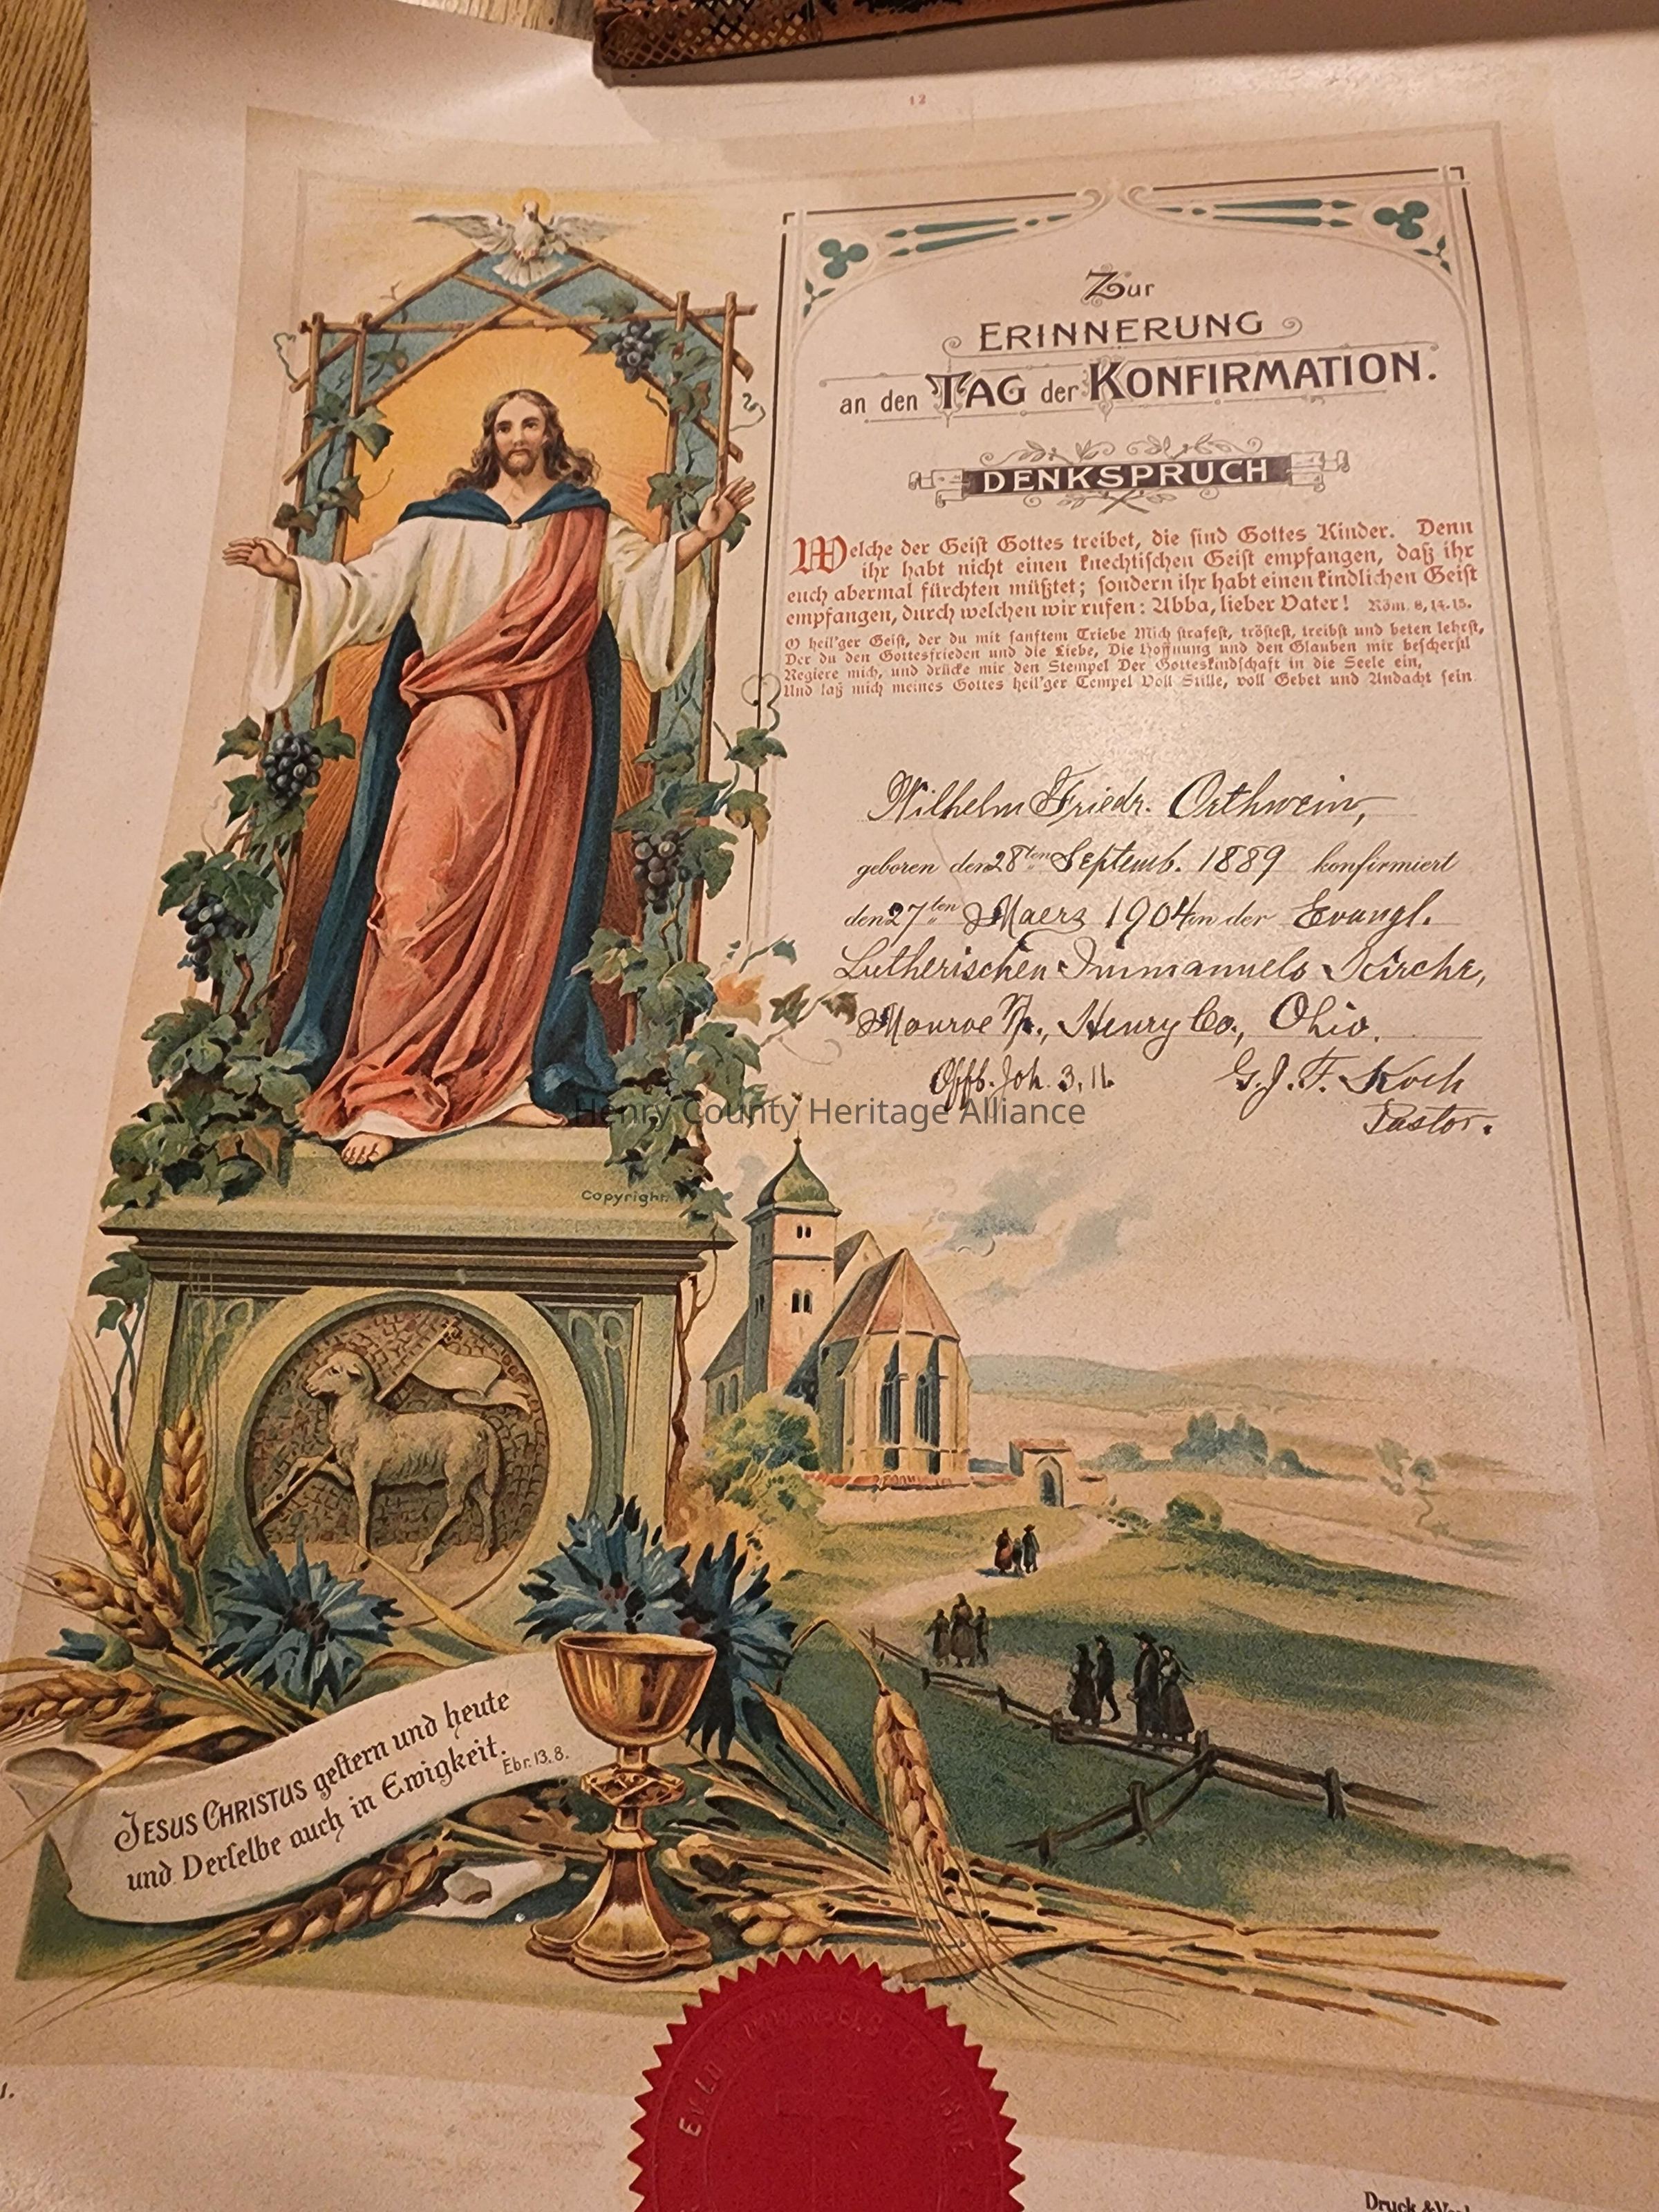 12
Zur
ERINNERUNG
an den TAG der KONFIRMATION.
DENKSPRUCH
Welche der Geist Gottes treibet, die sind Gottes Kinder. Denn
ihr habt nicht einen knechtischen Geist empfangen, daß ihr
euch abermal fürchten müßtet; sondern ihr habt einen kindlichen Geist
empfangen, durch welchen wir rufen: Abba, lieber Vater! Röm. 8, 14. 15.
O heil'ger Geist, der du mit sanftem Triebe Mich strafest, tröstest, treibst und beten lehrst,
Der du den Gottesfrieden und die Liebe, Die Hoffnung und den Glauben mir bescherst
Regiere mich, und drücke mir den Stempel Der Gotteskindschaft in die Seele ein,
Und laß mich meines Gottes heil'ger Tempel Voll Stille, voll Gebet und Andacht sein
Wilhelm Friedr. Orthwein,
geboren den 28ten Septemb. 1889 konfirmiert
den 27ten Maerz 1904 in der Evangl.
Lutherischen Immanuels Kirche,
Monroe Tp., Henry Co., Ohio.
Offb. Joh. 3, 11. G. J. F. Koch
Pastor.
Henry County Heritage Alliance
Copyright.
JESUS CHRISTUS gestern und heute
und Derselbe auch in Ewigkeit. Ebr. 13. 8.
Druck &